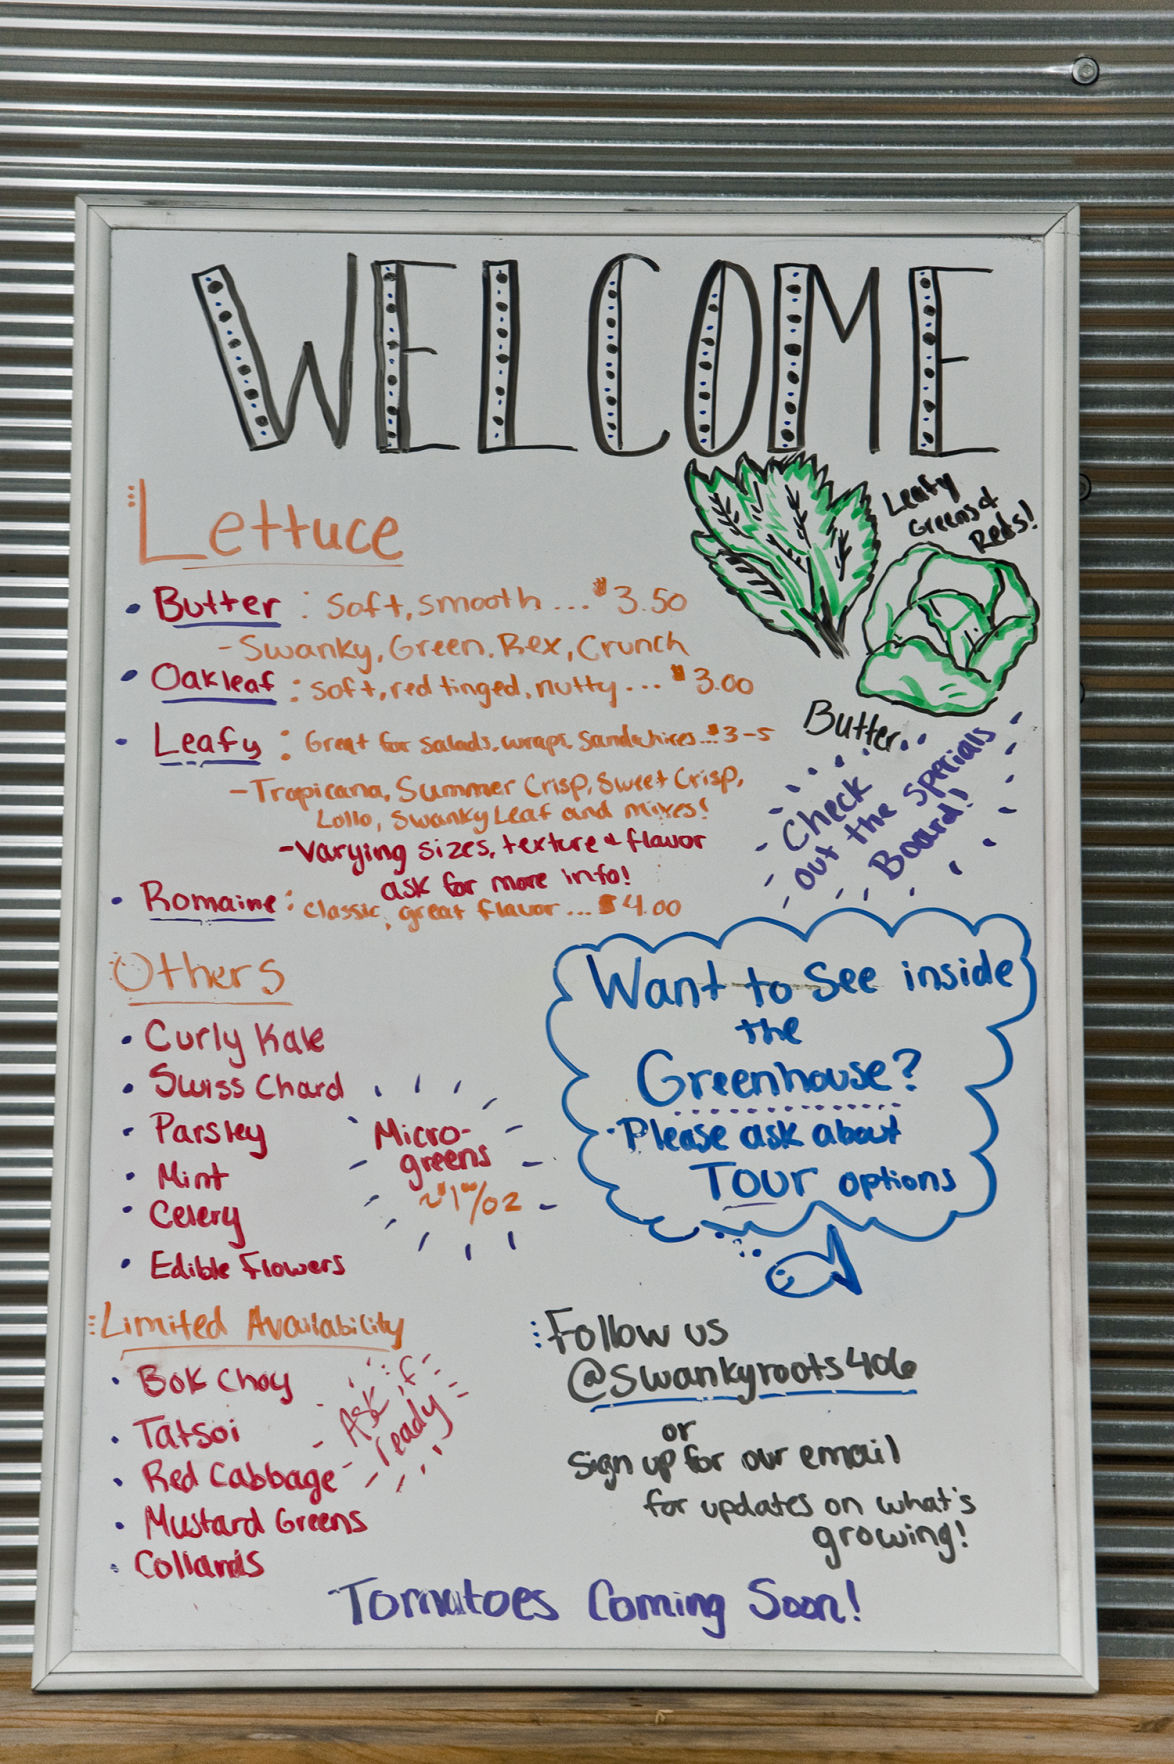 WELCOME
Lettuce
• Butter : Soft, smooth ... $3.50
- Swanky, Green, Rex, Crunch
• Oakleaf : soft, red tinged, nutty ... $3.00
• Leafy : Great for salads, wraps, sandwhices ... $3-5
- Tropicana, Summer Crisp, Sweet Crisp,
Lollo, Swanky Leaf and mixes!
- Varying sizes, texture & flavor
ask for more info!
• Romaine : Classic, great flavor ... $4.00
Leafy
Greens &
Reds!
Butter
Check
out the specials
Board!
Others
• Curly Kale
• Swiss Chard
• Parsley
• Mint
• Celery
• Edible Flowers
Micro-
greens
~$1⁰⁰/oz
Want to See inside
the
Greenhouse?
• Please ask about
Tour options
Limited Availability
• Bok Choy
• Tatsoi
• Red Cabbage
• Mustard Greens
• Collards
Ask if
ready
Follow us
@swankyroots406
or
sign up for our email
for updates on what's
growing!
Tomatoes Coming Soon!